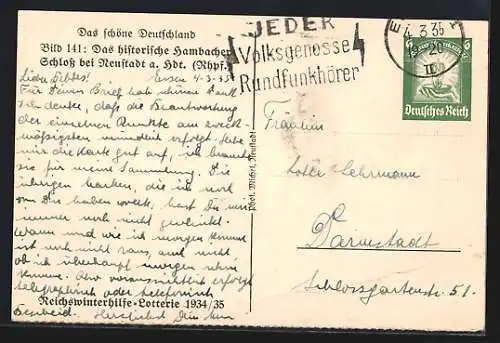 Das schöne Deutschland
Bild 141: Das historische Hambacher
Schloß bei Neustadt a. Hdt. (Rhpf.)
Essen 4-3-35
Für Deinen Brief hab schönen Dank
Ich denke, daß die Beantwortung
der einzelnen Punkte am zweck-
mäßigsten mündlich erfolgt. Hebe
mir die Karte gut auf, ich brauche
sie für meine Sammlung. Die
übrigen Marken, die ich noch
von Dir haben wollte, hast Du mir
immer noch nicht geschickt.
Wann und wie ich morgen komme
ist noch nicht raus, auch nicht
ob ich überhaupt morgen schon
komme. Aber voraussichtlich erfolgt
telegraphisch oder telefonisch
Reichswinterhilfe-Lotterie 1934/35
Bescheid. Herzlichst Dein
Phot. Michel, Neustadt
JEDER
Volksgenosse
Rundfunkhörer
4.3.35
6
Deutsches Reich
Fräulein
Lotte Lehrmann
Darmstadt
Schlossgartenstr. 51.